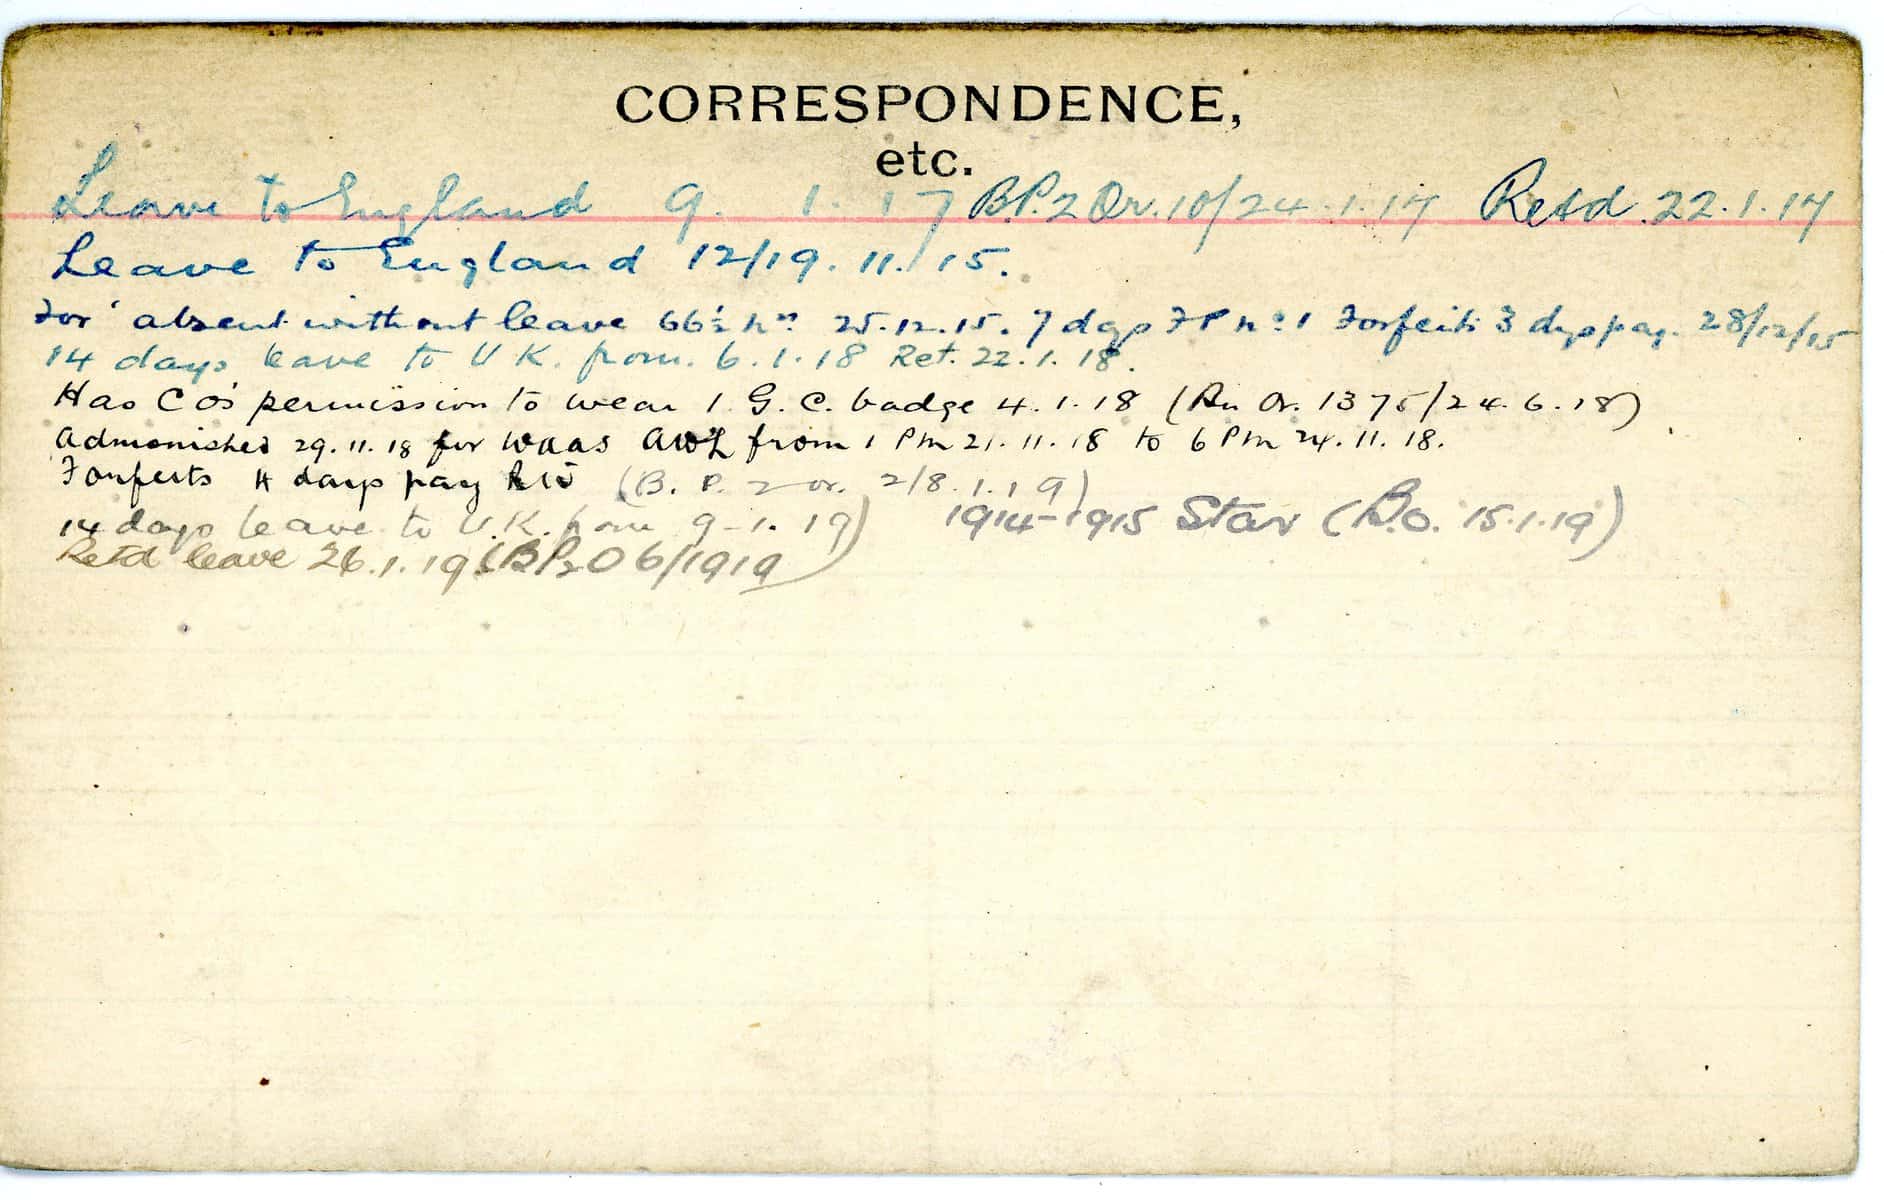 CORRESPONDENCE,
etc.
Leave to England 9. 1. 17 B.P.2 Or. 10/24.1.17 Retd. 22.1.17
Leave to England 12/19. 11. 15.
For absent without leave 66½ hrs 25.12.15. 7 days F P No 1 Forfeits 3 dys pay. 28/12/15
14 days leave to U K. from. 6.1.18 Ret. 22.1.18.
Has C O's permission to wear 1 G. C. badge 4.1.18 (Rn Or. 1375/24.6.18)
Admonished 29.11.18 for WOAS AWL from 1 Pm 21.11.18 to 6 Pm 24.11.18.
Forfeits 4 days pay RW (B. P. 2 or. 2/8.1.19)
14 days leave to U.K. from 9-1.19) 1914-1915 Star (B.O. 15.1.19)
Retd leave 26.1.19 (BP2O 6/1919)